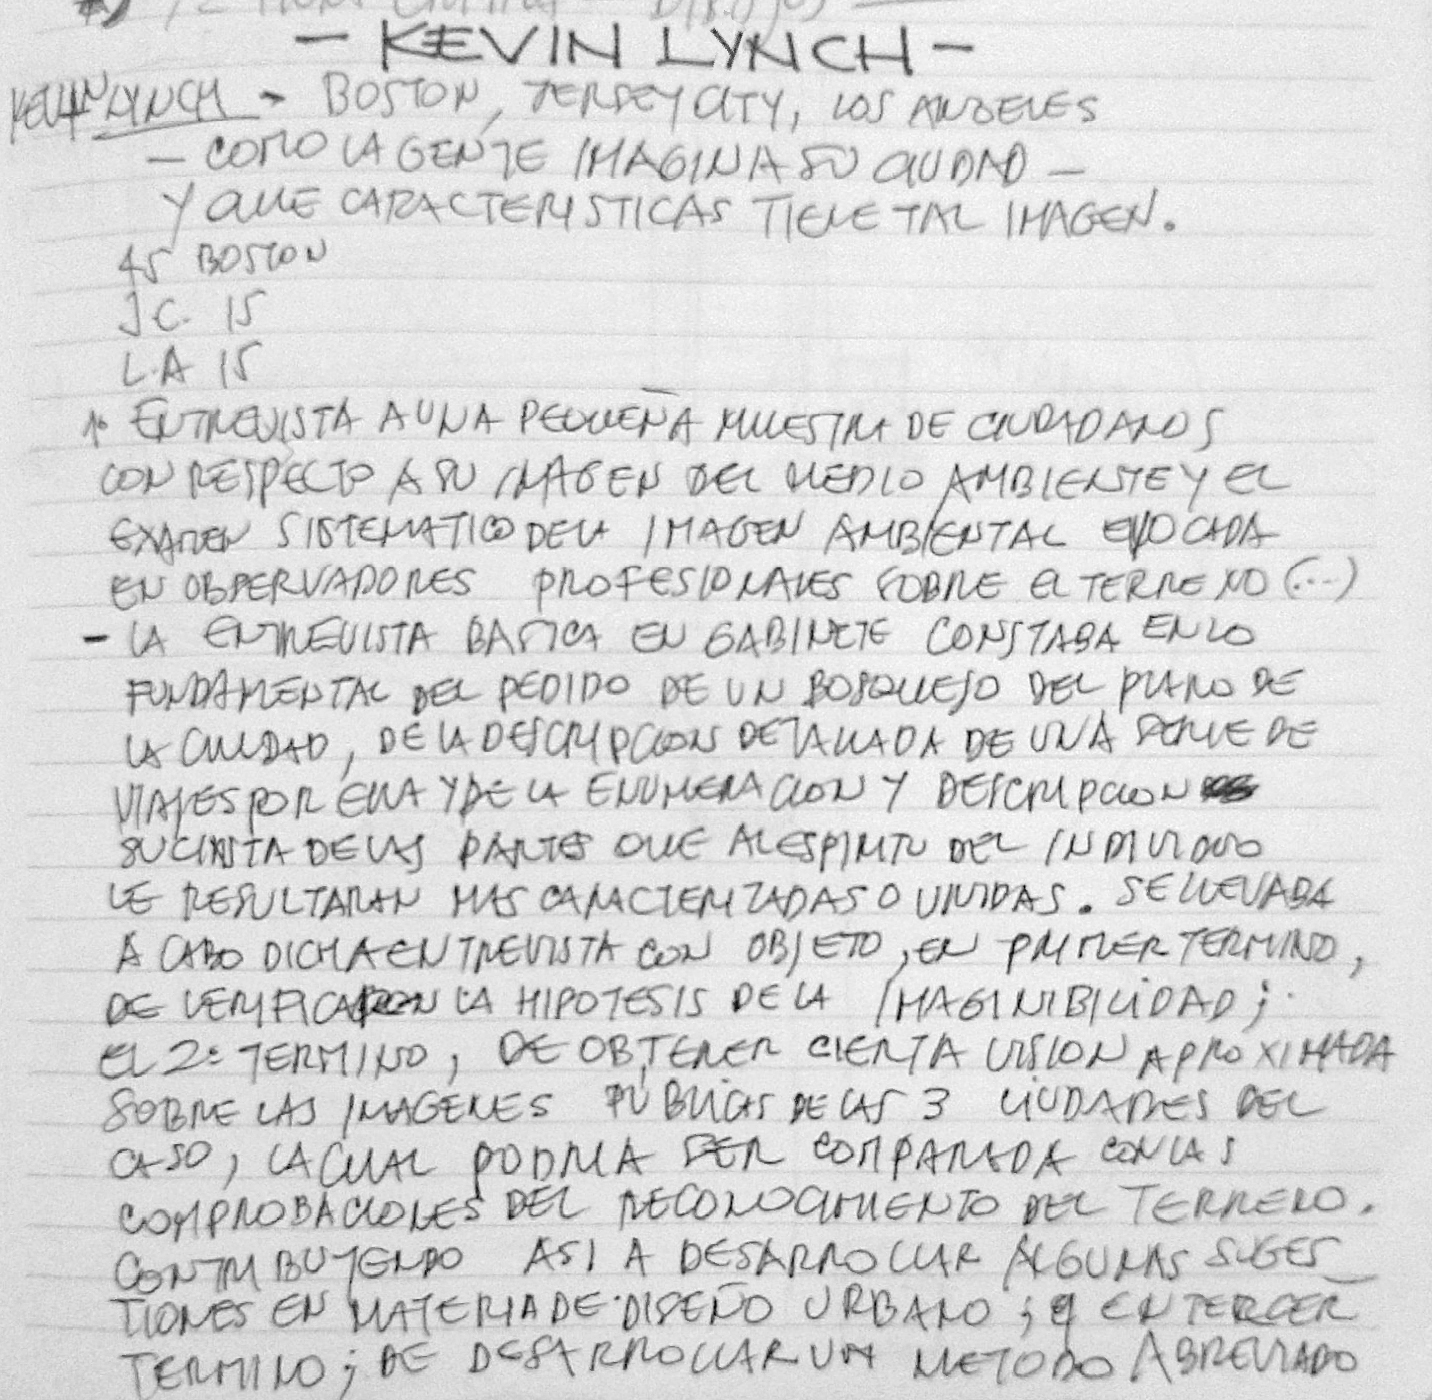 - KEVIN LYNCH -
KEVIN LYNCH - BOSTON, JERSEY CITY, LOS ANGELES
- COMO LA GENTE IMAGINA SU CIUDAD -
Y QUE CARACTERISTICAS TIENE TAL IMAGEN.
45 BOSTON
J.C. 15
L.A 15
1º ENTREVISTA A UNA PEQUEÑA MUESTRA DE CIUDADANOS
CON RESPECTO A SU IMAGEN DEL MEDIO AMBIENTE Y EL
EXAMEN SISTEMATICO DE LA IMAGEN AMBIENTAL EVOCADA
EN OBSERVADORES PROFESIONALES SOBRE EL TERRENO (...)
- LA ENTREVISTA BASICA EN GABINETE CONSTABA EN LO
FUNDAMENTAL DEL PEDIDO DE UN BOSQUEJO DEL PLANO DE
LA CIUDAD, DE LA DESCRIPCION DETALLADA DE UNA SERIE DE
VIAJES POR ELLA Y DE LA ENUMERACION Y DESCRIPCION
SUCINTA DE LAS PARTES QUE AL ESPIRITU DEL INDIVIDUO
LE RESULTARAN MAS CARACTERIZADAS O VIVIDAS. SE LLEVABA
A CABO DICHA ENTREVISTA CON OBJETO, EN PRIMER TERMINO,
DE VERIFICAR LA HIPOTESIS DE LA IMAGINIBILIDAD;
EL 2º TERMINO, DE OBTENER CIERTA VISION APROXIMADA
SOBRE LAS IMAGENES PÚBLICAS DE LAS 3 CIUDADES DEL
CASO, LA CUAL PODRIA SER COMPARADA CON LAS
COMPROBACIONES DEL RECONOCIMIENTO DEL TERRENO.
CONTRIBUYENDO ASI A DESARROLLAR ALGUNAS SUGES_
TIONES EN MATERIA DE DISEÑO URBANO; Y EN TERCER
TERMINO; DE DESARROLLAR UN METODO ABREVIADO